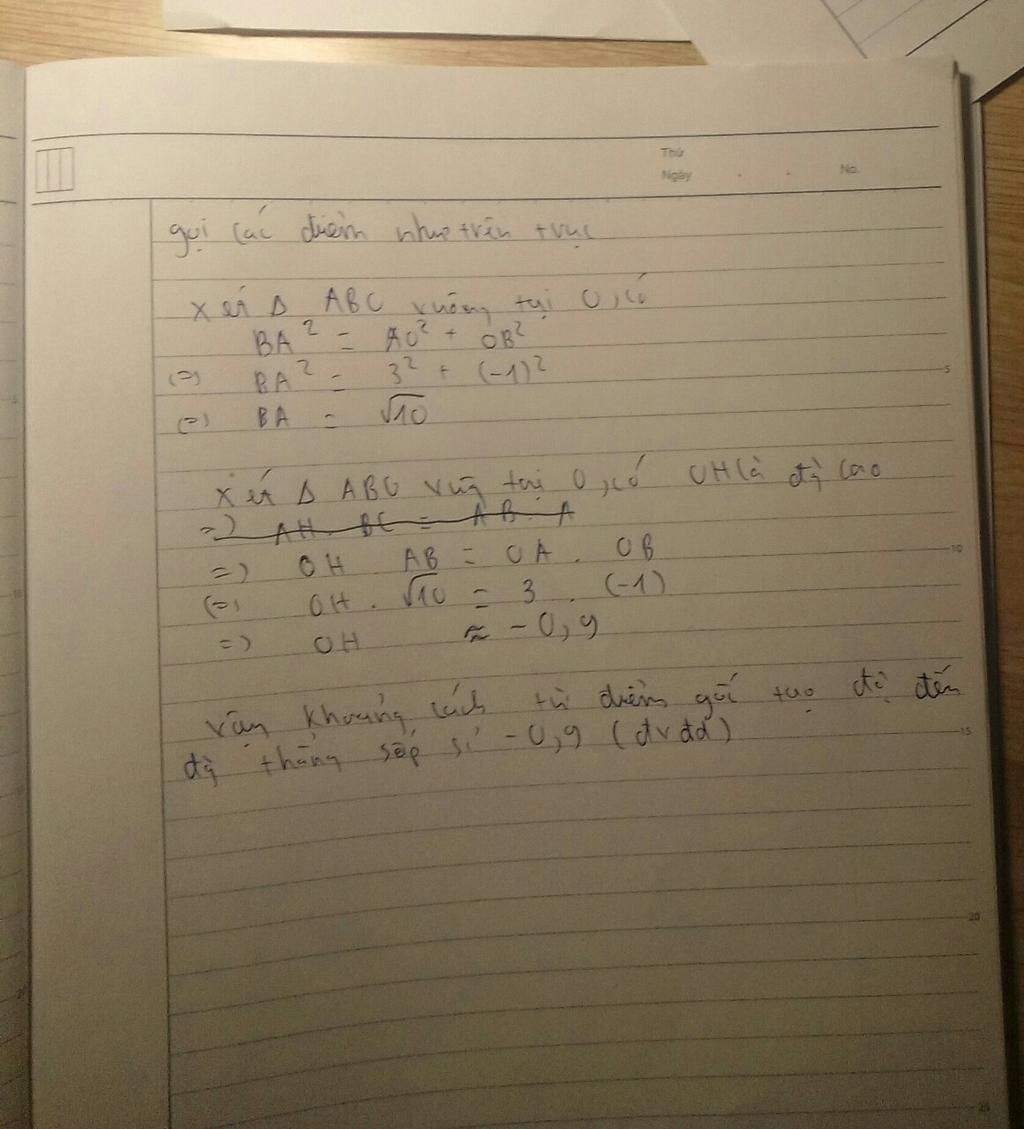 Thứ
Ngày . . No.
gọi các điểm như trên trục
xét Δ ABO vuông tại O, có
BA² = AO² + OB²
(=) BA² = 3² + (-1)²
(=) BA = √10
xét Δ ABO vuig tại O, có OH là đg cao
=) AH . BC = AB . A
=) OH AB = OA . OB
(=) OH . √10 = 3 . (-1)
=) OH ≈ -0,9
vậy khoảng cách từ điểm gốc tạo độ đến
đg thẳng sấp sỉ -0,9 (đvđd)
5
10
15
20
25